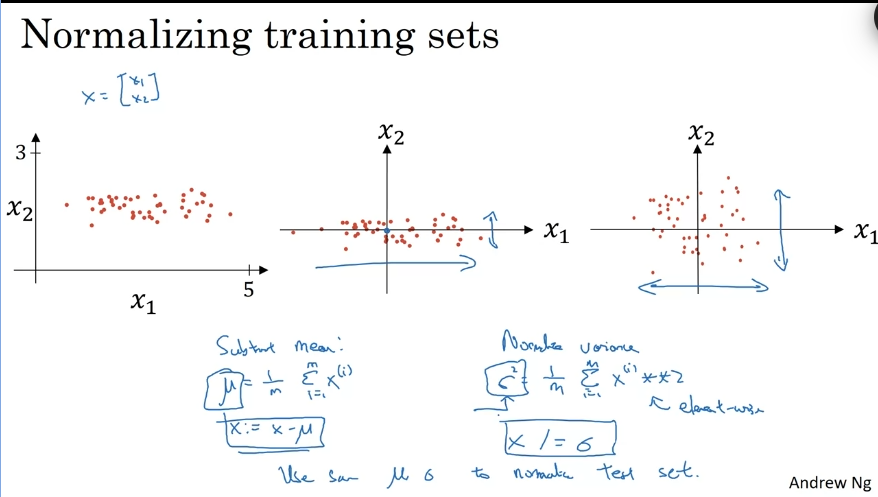 Normalizing training sets
x = [x₁ x₂]
3
x₂
x₁
5
x₂
x₁
x₂
x₁
Subtract mean:
μ = 1/m Σᵢ₌₁ᵐ x⁽ⁱ⁾
x := x - μ
Normalize variance
σ² = 1/m Σᵢ₌₁ᵐ x⁽ⁱ⁾ **2
element-wise
x /= σ
Use same μ σ to normalize test set.
Andrew Ng